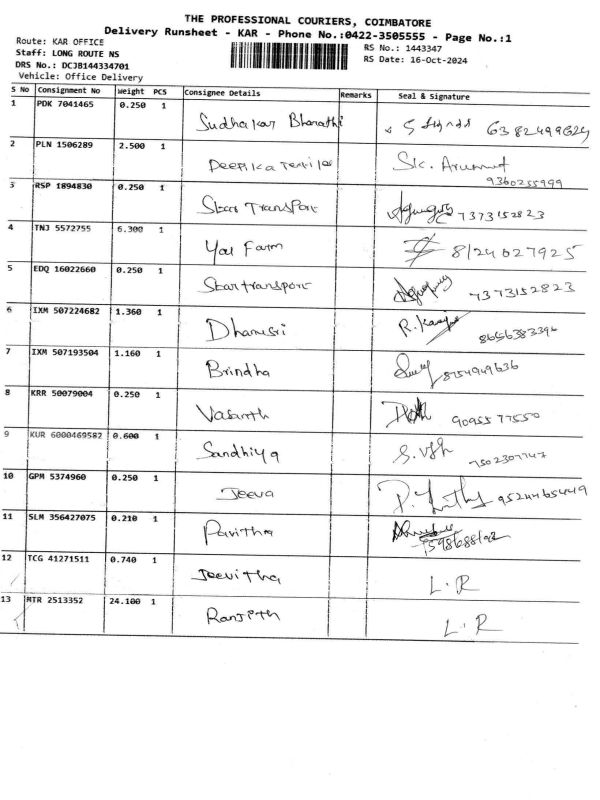 THE PROFESSIONAL COURIERS, COIMBATORE
Delivery Runsheet - KAR - Phone No.:0422-3505555 - Page No.:1
Route: KAR OFFICE
Staff: LONG ROUTE NS
DRS No.: DCJB144334701
Vehicle: Office Delivery
RS No.: 1443347
RS Date: 16-Oct-2024
S No Consignment No Weight PCS Consignee Details Remarks Seal & Signature
1 PDK 7041465 0.250 1 Sudhakar Bharathi
2 PLN 1506289 2.500 1 Deepika 9360255999
3 RSP 1894830 0.250 1 Star Transport 7373152823
4 TNJ 5572755 6.300 1 Farm
5 EDQ 16022660 0.250 1 Star transport 7373152823
6 IXM 507224682 1.360 1 Dhanusri 8656383396
7 IXM 507193504 1.160 1 Brindha 8754949636
8 KRR 50079004 0.250 1 Vasanth 9095577550
9 KUR 6000469582 0.600 1 Sandhiya 7502307747
10 GPM 5374960 0.250 1 Jeeva 9524465449
11 SLM 356427075 0.210 1 Pavitha
12 TCG 41271511 0.740 1 Jeevitha L.R
13 MTR 2513352 24.100 1 Ranjith L.R